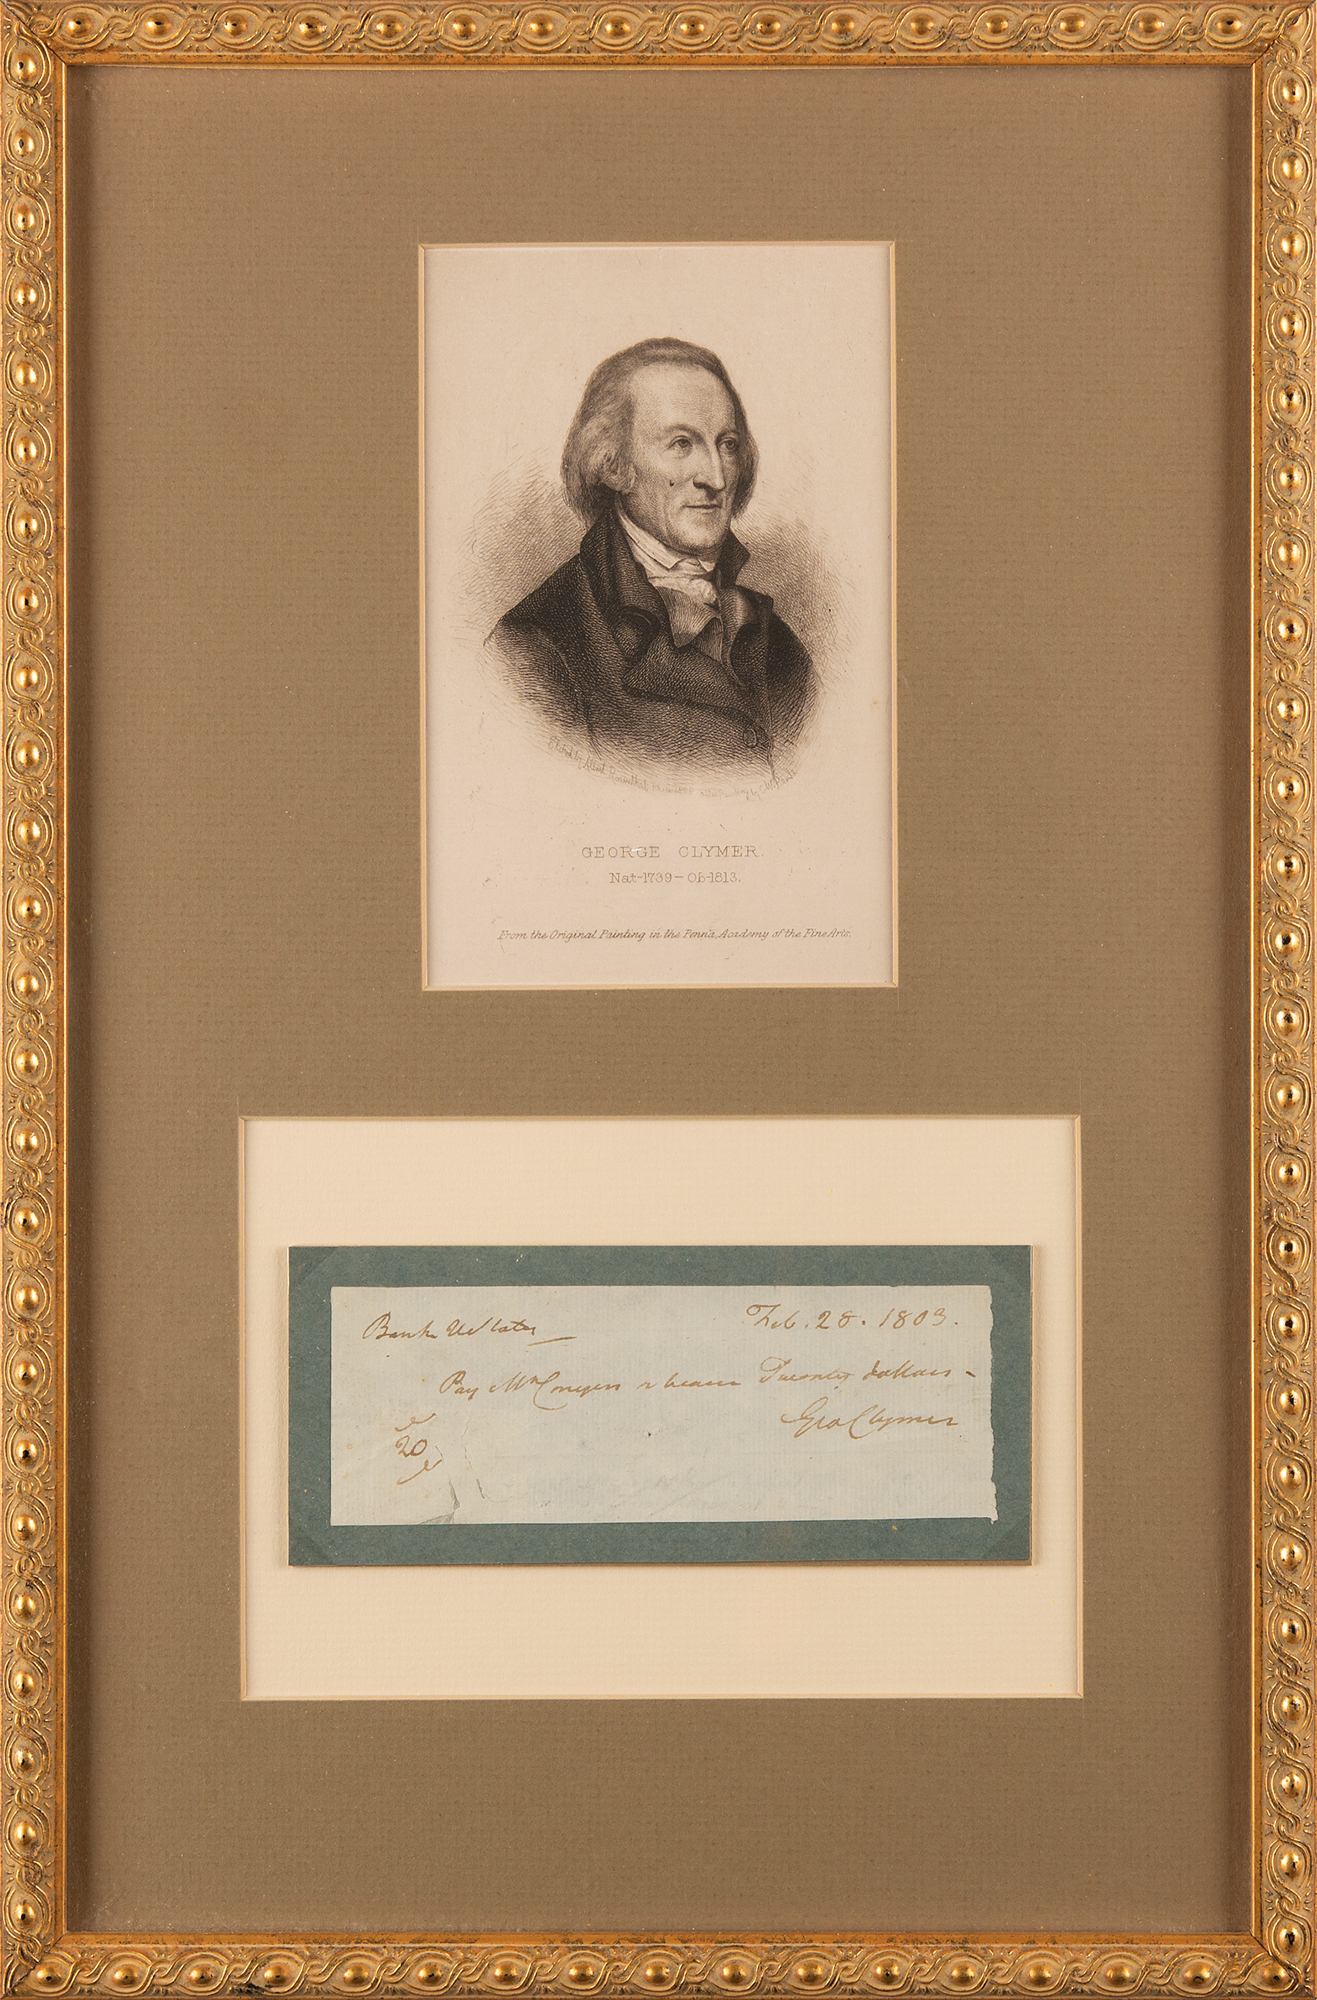 Etched by Albert Rosenthal Phila. 1888 after Painting by C.W. Peale
GEORGE CLYMER.
Nat-1739-Ob-1813.
From the Original Painting in the Penn'a Academy of the Fine Arts.
Bank U States Feb. 28. 1803.
Pay Mr Conyers or bearer Twenty dollars -
20 Geo Clymer